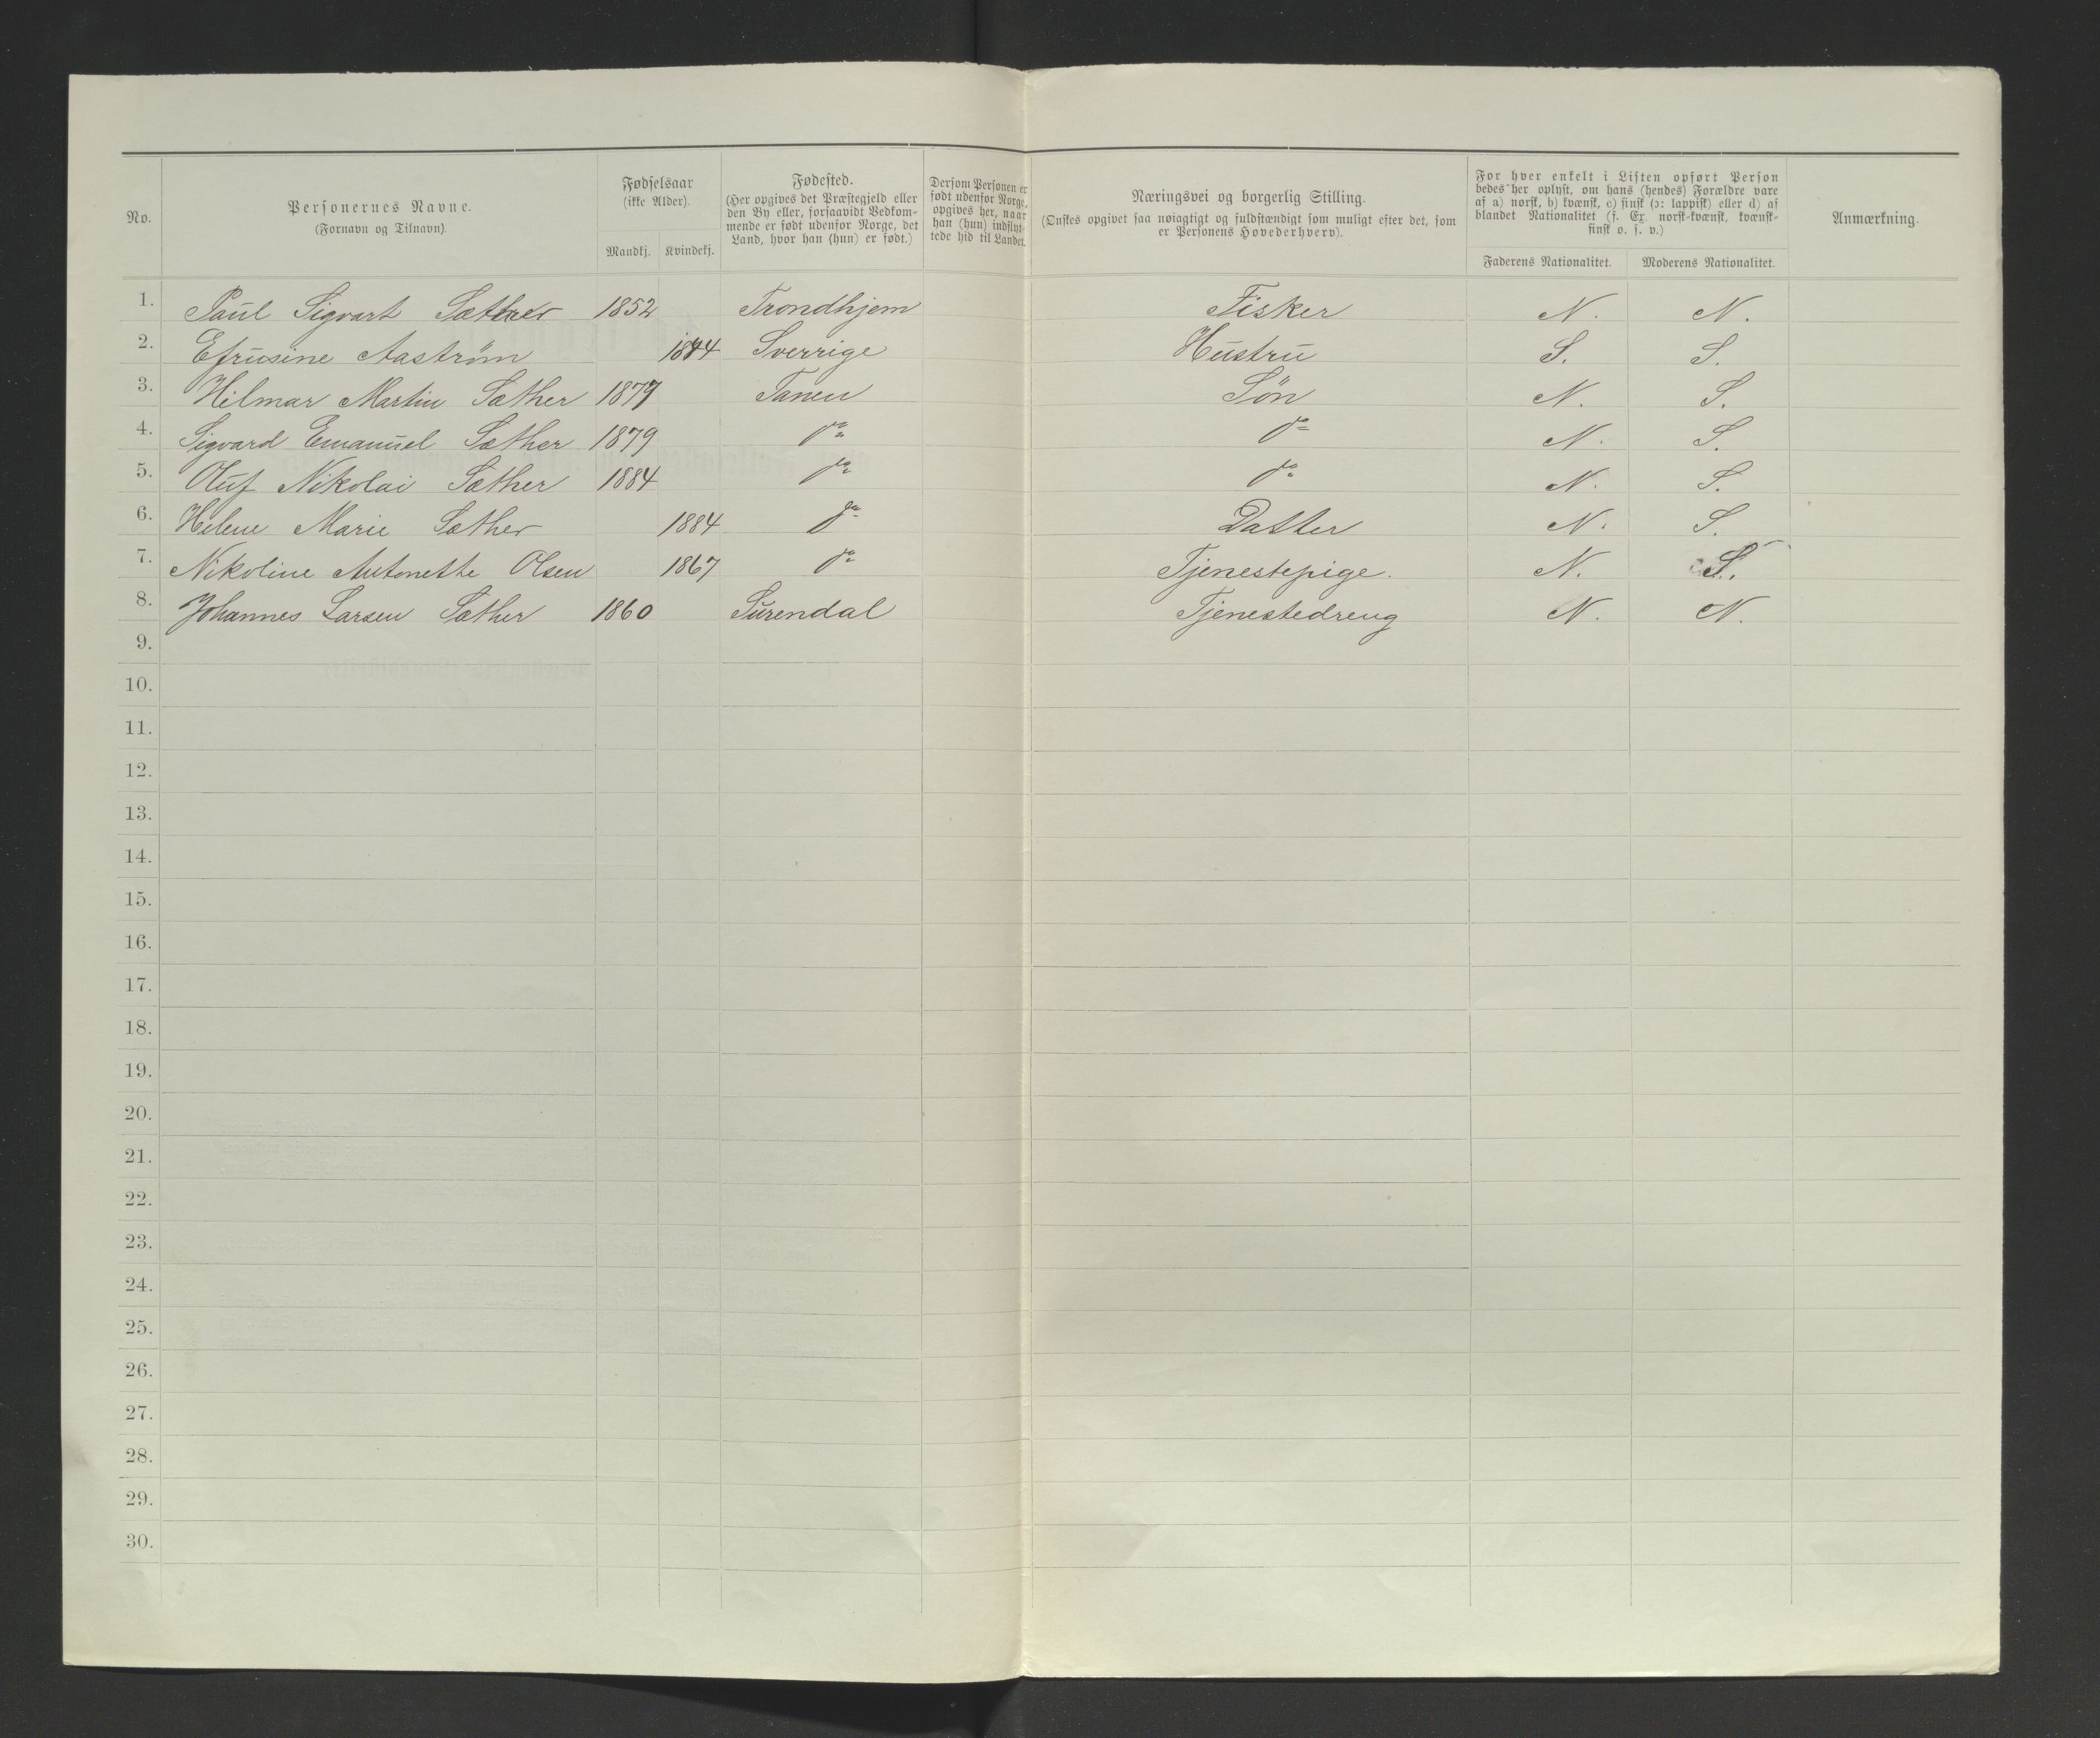 No.
Personernes Navne.
(Fornavn og Tilnavn).
Fødselsaar
(ikke Alder).
Mandkj. Kvindekj.
Fødested.
(Her opgives det Præstegjeld eller
den By eller, forsaavidt Vedkom-
mende er født udenfor Norge, det
Land, hvor han (hun) er født.)
Dersom Personen er
født udenfor Norge,
opgives her, naar
han (hun) indflyt-
tede hid til Landet.
Næringsvei og borgerlig Stilling.
(Ønskes opgivet saa nøiagtigt og fuldstændigt som muligt efter det, som
er Personens Hovederhverv).
For hver enkelt i Listen opført Person
bedes her oplyst, om hans (hendes) Forældre vare
af a) norsk, b) kvænsk, c) finsk (ɔ: lappisk) eller d) af
blandet Nationalitet (f. Ex. norsk-kvænsk, kvænsk-
finsk o. s. v.)
Faderens Nationalitet. Moderens Nationalitet.
Anmærkning.
1. Paul Sigvart Sæther 1852 Trondhjem Fisker N. N.
2. Efrusine Aaström 1844 Sverrige Hustru S. S.
3. Hilmar Martin Sæther 1877 Tanen Søn N. S.
4. Sigvard Emanuel Sæther 1879 do do N. S.
5. Oluf Nikolai Sæther 1884 do do N. S.
6. Helene Marie Sæther 1884 do Datter N. S.
7. Nikoline Antonette Olsen 1867 do Tjenestepige. N. S.
8. Johannes Larsen Sæther 1860 Surendal Tjenestedreng N. N.
9.
10.
11.
12.
13.
14.
15.
16.
17.
18.
19.
20.
21.
22.
23.
24.
25.
26.
27.
28.
29.
30.